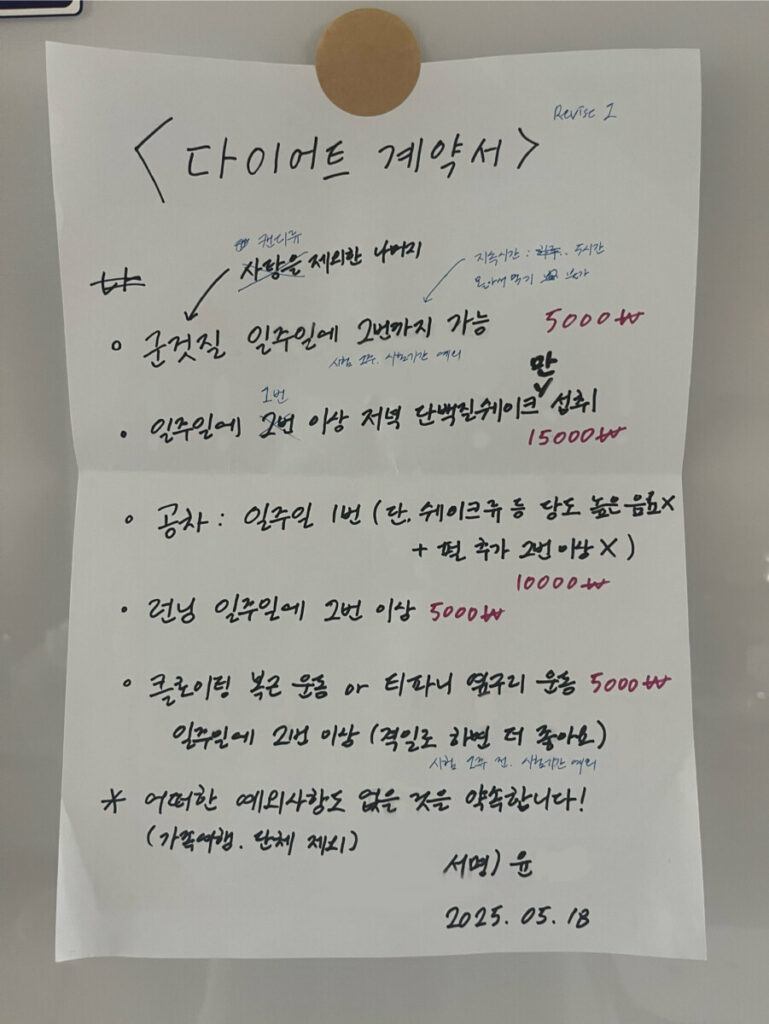 Revise 1
<다이어트 계약서>
캔디류
사탕을 제외한 나머지
지속시간 : 5시간
몰아서 먹기 불가
군것질 일주일에 2번까지 가능 5000₩
시험 2주. 시험기간 예외
1번 만
일주일에 2번 이상 저녁 단백질쉐이크 섭취
15000₩
공차 : 일주일 1번 (단, 쉐이크류 등 당도 높은 음료X
+ 펄 추가 2번 이상 X)
10000₩
런닝 일주일에 2번 이상 5000₩
클로이팅 복근 운동 or 티파니 옆구리 운동 5000₩
일주일에 2번 이상 (격일로 하면 더 좋아요)
시험 2주 전. 시험기간 예외
* 어떠한 예외사항도 없을 것을 약속합니다!
(가족여행. 단체 제외)
서명) 윤
2025. 05. 18